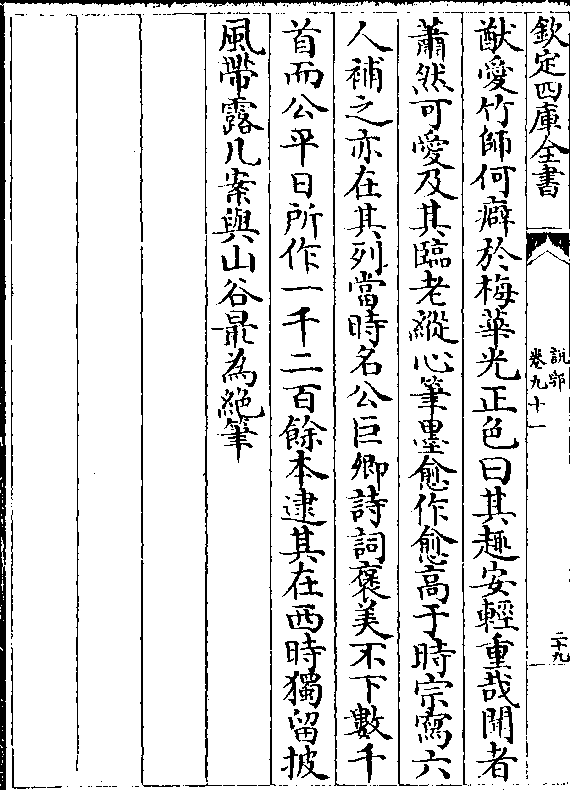 欽定四庫全書
說郛
卷九十一
二十九
猷愛竹師何癖於梅華光正色曰其趣安輕重哉聞者
蕭然可愛及其臨老縱心筆墨愈作愈高于時宗寫六
人補之亦在其列當時名公巨卿詩詞褒美不下數千
首而公平日所作一千二百餘本逮其在西時獨留披
風帶露几案與山谷最為絕筆